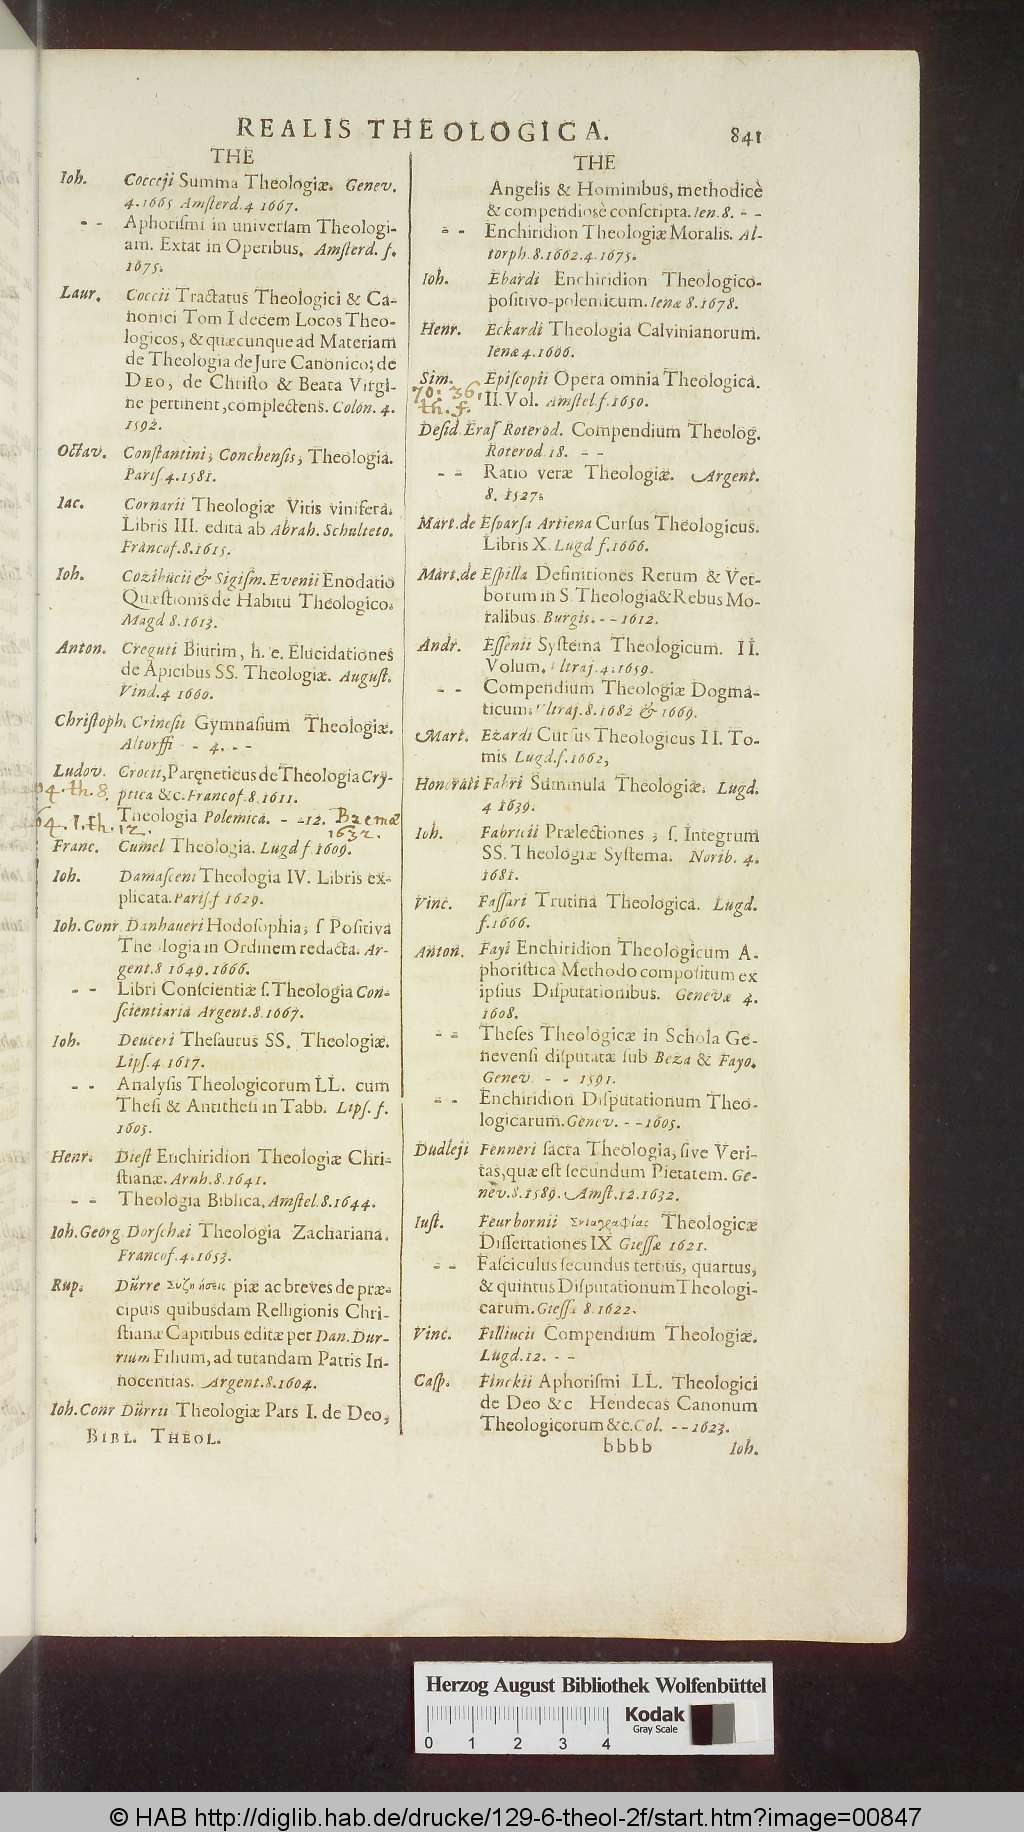 REALIS THEOLOGICA. 841
THE
Ioh. Cocceji Summa Theologiæ. Genev.
4.1665 Amſterd.4 1667.
- - Aphoriſmi in univerſam Theologi-
am. Extat in Operibus. Amſterd. f.
1675.
Laur. Coccii Tractatus Theologici & Ca-
nonici Tom I decem Locos Theo-
logicos, & quæcunque ad Materiam
de Theologia de Jure Canonico; de
DEO, de Chriſto & Beata Virgi-
ne pertinent, complectens. Colon. 4.
1592.
Octav. Conſtantini, Conchenſis, Theologia.
Pariſ.4.1581.
Iac. Cornarii Theologiæ Vitis vinifera.
Libris III. edita ab Abrah. Schulteto.
Francof.8.1615.
Ioh. Cozibucii & Sigiſm. Evenii Enodatio
Quæſtionis de Habitu Theologico.
Magd 8.1613.
Anton. Creguti Biurim, h. e. Elucidationes
de Apicibus SS. Theologiæ. Auguſt.
Vind.4 1660.
Chriſtoph. Crineſii Gymnaſium Theologiæ.
Altorffi - - 4. - -
Ludov. Crocii, Paręneticus de Theologia Cry-
ptica &c. Francof.8.1611.
04. th. 8.
Theologia Polemica. - -12. Bremæ
1632.
64. 1. th. 12.
Franc. Cumel Theologia. Lugd f.1609.
Ioh. Damaſceni Theologia IV. Libris ex-
plicata. Pariſ.f 1629.
Ioh. Conr. Danhaueri Hodoſophia; ſ Poſitiva
The logia in Ordinem redacta. Ar-
gent.8 1649.1666.
- - Libri Conſcientiæ ſ. Theologia Con-
ſcientiaria Argent.8.1667.
Ioh. Deuceri Theſaurus SS. Theologiæ.
Lipſ.4.1617.
- - Analyſis Theologicorum LL. cum
Theſi & Antitheſi in Tabb. Lipſ. f.
1603.
Henr. Dieſt Enchiridion Theologiæ Chri-
ſtianæ. Arnh.8.1641.
- - Theologia Biblica. Amſtel.8.1644.
Ioh. Georg. Dorſchæi Theologia Zachariana.
Francof.4.1653.
Rup. Dürre Συζητήσεις piæ ac breves de præ-
cipuis quibusdam Relligionis Chri-
ſtianæ Capitibus editæ per Dan. Dur-
rium Filium, ad tutandam Patris In-
nocentias. Argent.8.1604.
Ioh. Conr Dürrii Theologiæ Pars I. de Deo,
BIBL. THEOL.
THE
Angelis & Hominibus, methodicè
& compendiosè conſcripta. Ien.8. - -
- - Enchiridion Theologiæ Moralis. Al-
torph.8.1662.4.1675.
Ioh. Ebardi Enchiridion Theologico-
poſitivo-polemicum. Ienæ 8.1678.
Henr. Eckardi Theologia Calvinianorum.
Ienæ 4.1606.
Sim. Epiſcopii Opera omnia Theologica.
II. Vol. Amſtel.f.1650.
70: 36.
th. f.
Deſid. Eraſ Roterod. Compendium Theolog.
Roterod.18. - -
- - Ratio veræ Theologiæ. Argent.
8. 1527.
Mart. de Eſparſa Artiena Curſus Theologicus.
Libris X. Lugd f.1666.
Mart. de Eſpilla Definitiones Rerum & Ver-
borum in S. Theologia & Rebus Mo-
ralibus. Burgis. - - 1612.
Andr. Eſſenii Syſtema Theologicum. II.
Volum. ltraj.4.1659.
- - Compendium Theologiæ Dogma-
ticum. Vltraj.8.1682 & 1669.
Mart. Ezardi Curſus Theologicus II. To-
mis Lugd.f.1662,
Honorati Fabri Summula Theologiæ. Lugd.
4 1639.
Ioh. Fabricii Prælectiones, ſ. Integrum
SS. Theologiæ Syſtema. Norib. 4.
1681.
Vinc. Faſſari Trutina Theologica. Lugd.
f.1666.
Anton. Fayi Enchiridion Theologicum A-
phoriſtica Methodo compoſitum ex
ipſius Diſputationibus. Genevæ 4.
1608.
- - Theſes Theologicæ in Schola Ge-
nevenſi diſputatæ ſub Beza & Fayo.
Genev. - - 1591.
- - Enchiridion Diſputationum Theo-
logicarum. Genev. - - 1605.
Dudleji Fenneri ſacra Theologia, ſive Veri-
tas, quæ eſt ſecundum Pietatem. Ge-
nev.8.1589. Amſt.12.1632.
Iuſt. Feurbornii Σκιαγραφίας Theologicæ
Diſſertationes IX Gieſſæ 1621.
- - Faſciculus ſecundus tertius, quartus,
& quintus Diſputationum Theologi-
carum. Gieſſ. 8.1622.
Vinc. Filliucii Compendium Theologiæ.
Lugd.12. - -
Caſp. Finckii Aphoriſmi LL. Theologici
de Deo &c Hendecas Canonum
Theologicorum &c. Col. - - 1623.
bbbb Ioh.
Herzog August Bibliothek Wolfenbüttel
Kodak
Gray Scale
0 1 2 3 4
© HAB http://diglib.hab.de/drucke/129-6-theol-2f/start.htm?image=00847